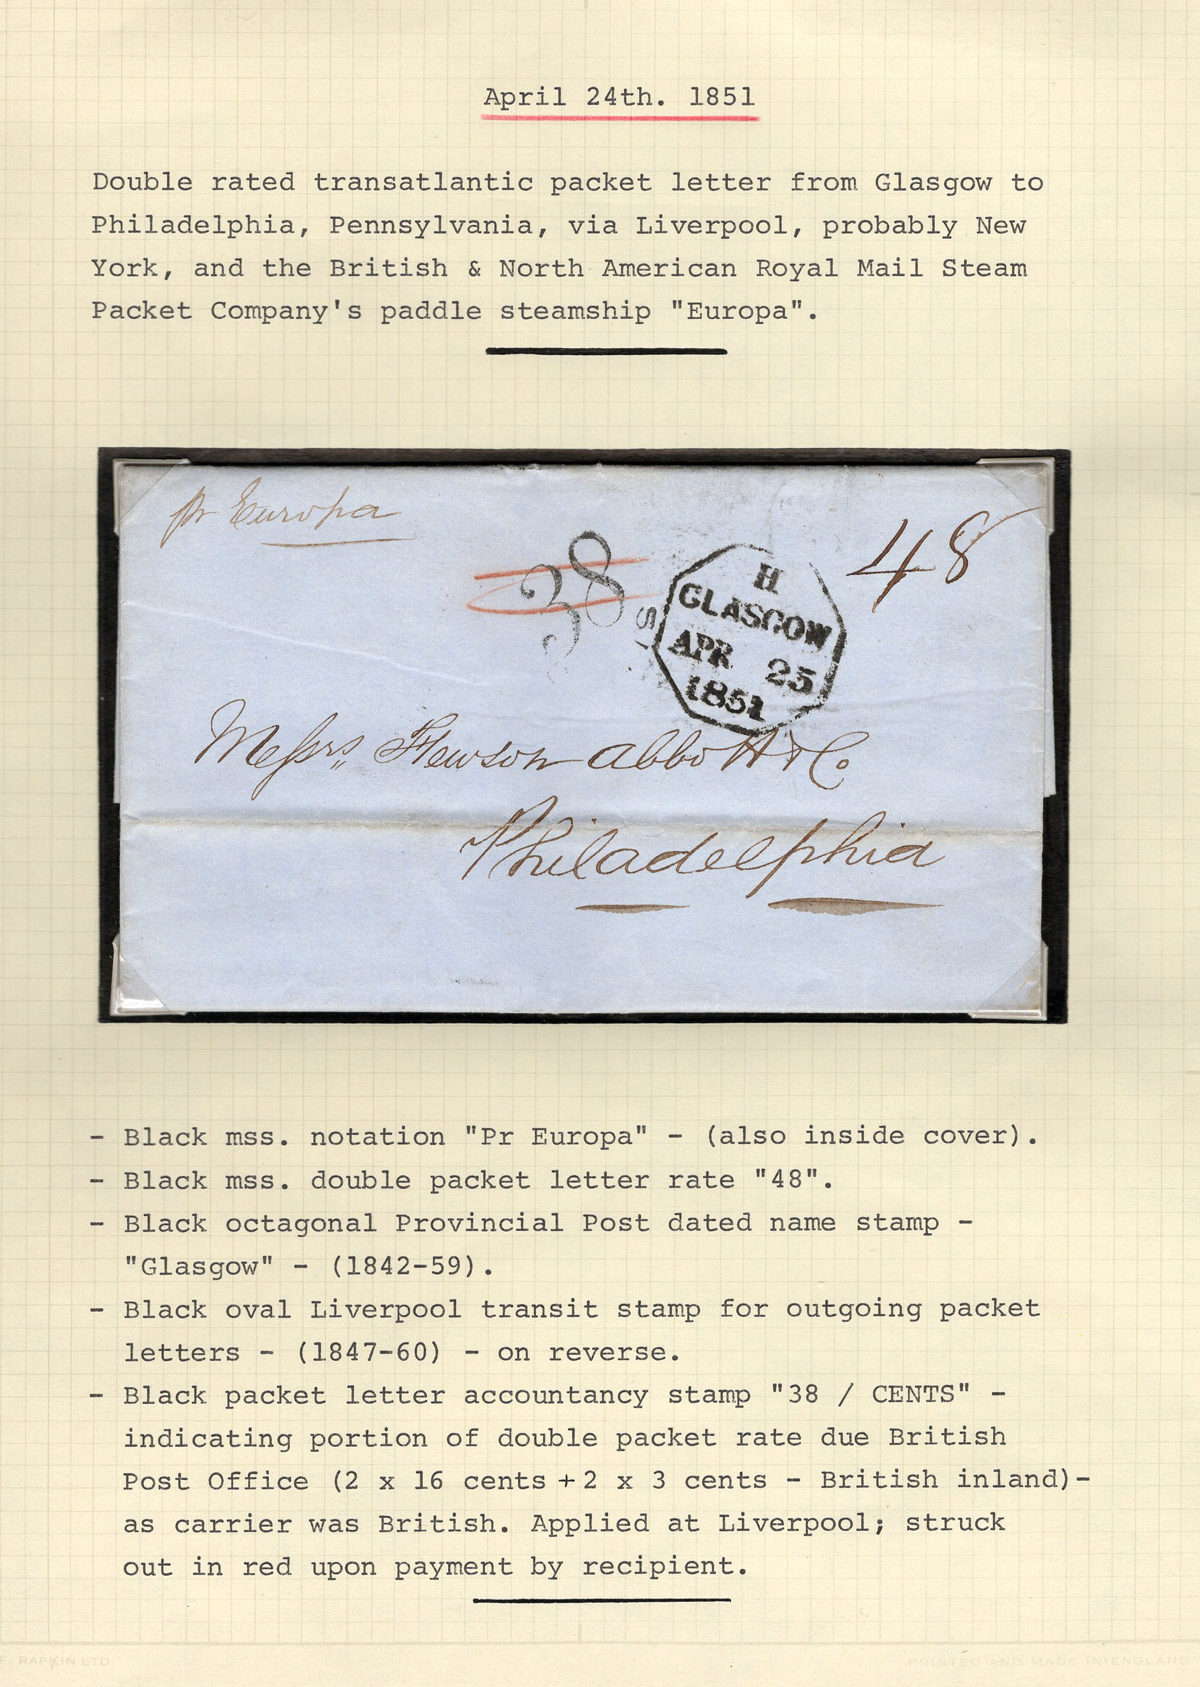 April 24th. 1851
Double rated transatlantic packet letter from Glasgow to
Philadelphia, Pennsylvania, via Liverpool, probably New
York, and the British & North American Royal Mail Steam
Packet Company's paddle steamship "Europa".
pr Europa
38
48
H
GLASGOW
APR 25
1851
Messrs Hewson Abbott & Co
Philadelphia
- Black mss. notation "Pr Europa" - (also inside cover).
- Black mss. double packet letter rate "48".
- Black octagonal Provincial Post dated name stamp -
"Glasgow" - (1842-59).
- Black oval Liverpool transit stamp for outgoing packet
letters - (1847-60) - on reverse.
- Black packet letter accountancy stamp "38 / CENTS" -
indicating portion of double packet rate due British
Post Office (2 x 16 cents + 2 x 3 cents - British inland)-
as carrier was British. Applied at Liverpool; struck
out in red upon payment by recipient.
F. RAPKIN LTD
PRINTED AND MADE IN ENGLAND